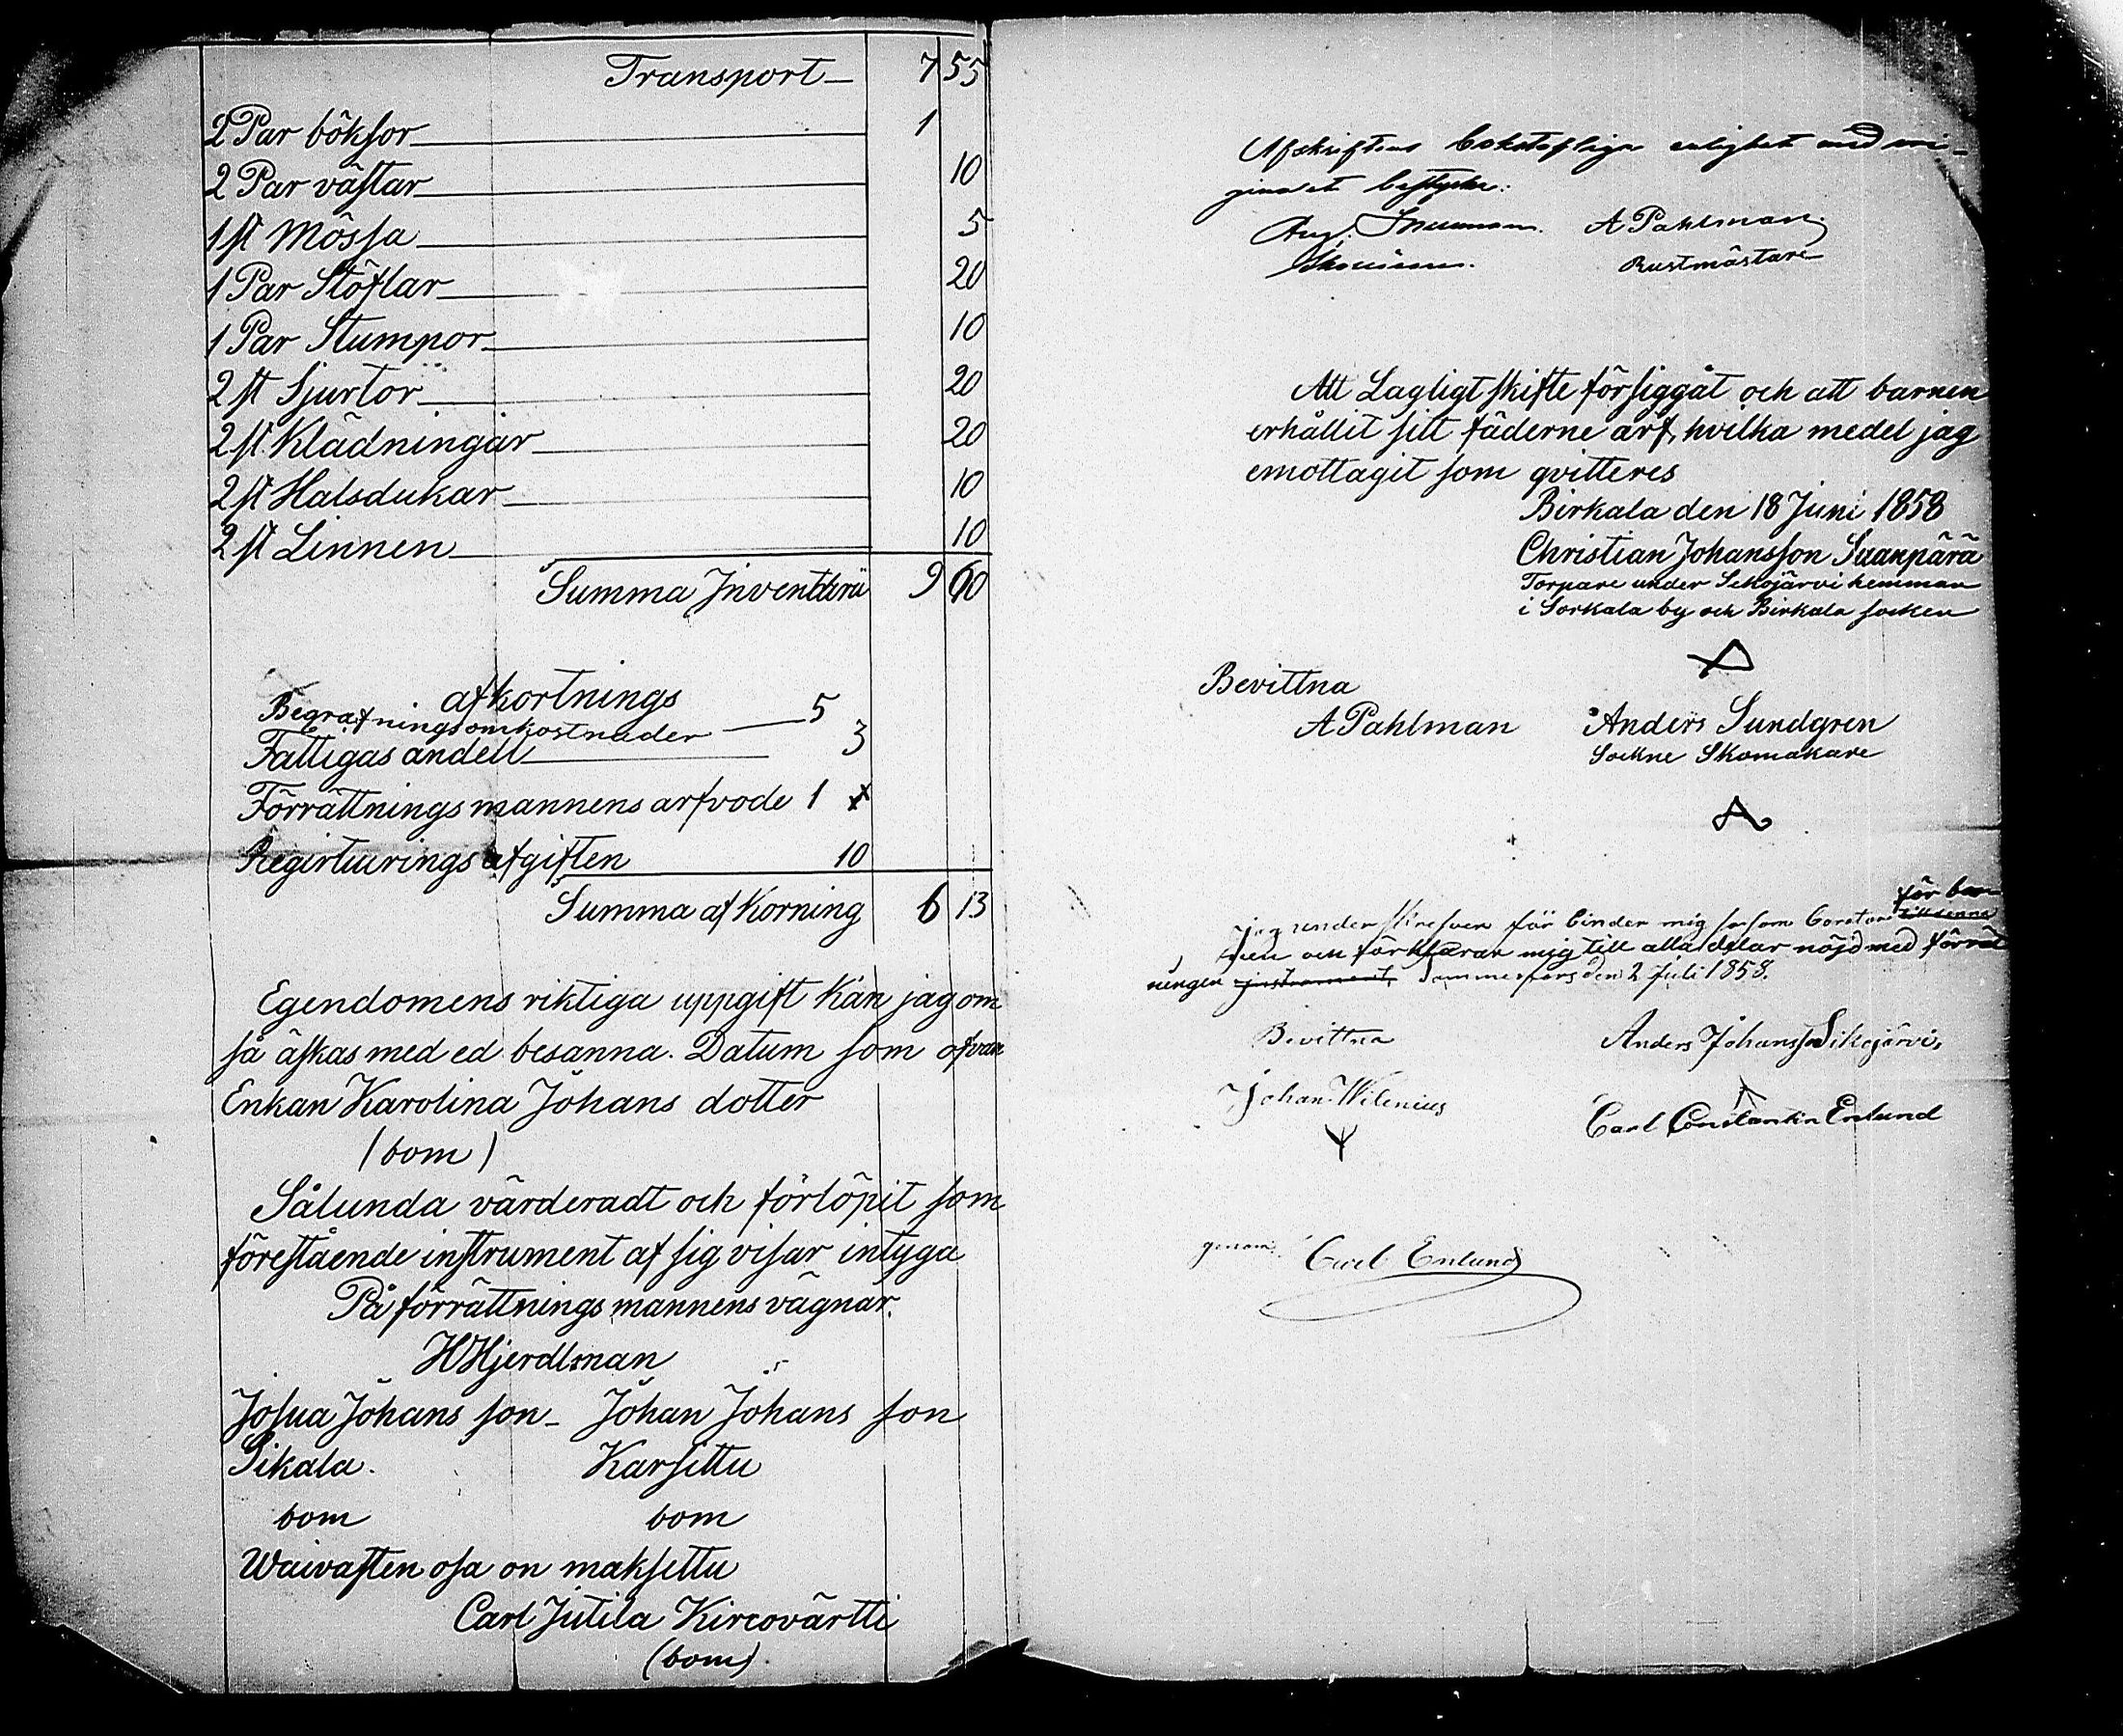 Transport 7 55
2 Par böksor 1
2 Par västar 10
1 st Mössa 5
1 Par Stöflar 20
1 Par Stumpor 10
2 st Sjurtor 20
2 st Klädningar 20
2 st Halsdukar 10
2 st Linnen 10
Summa 9 60
afkortnings
Begrafningsomkostnader 5
Fattigas andell 3
Förrättnings mannens arfvode 1
afgiften 10
Summa af Korning 6 13
Egendomens riktiga uppgift kan jag om
så äskas med ed besanna. Datum som ofvan
Enkan Karolina Johans dotter
(bom)
Sålunda värderadt och förlöpit som
förestående instrument af sig visar intyga
På förrättnings mannens vägnar.
H Hjerdlman
Josua Johans son - Johan Johans son
Sikala. Karsittu
bom bom
Waivasten osa on maksettu
Carl Jutila Kircovärtti
(bom).
Afskriftens bokstafliga enlighet med ori-
ginalet
Aug. A Pahlman
Rustmästare
Att Lagligt skifte försiggåt och att barnen
erhållit sitt fäderne arf, hvilka medel jag
emottagit som qvitteres
Birkala den 18 Juni 1858
Christian Johansson Saanpärä
Torpare under Sikojärvi hemman
i Sorkala by och Birkala socken
Bevittna
A Pahlman Anders Sundgren
Sockne Skomakare
för bar-
Jag under skrefven för binder mig såsom
nen och förklarar mig till alla delar nöjd med förrät
ningen instrument. Tammerfors den 2 Juli 1858.
Bevittna Anders Johansson Sikojärvi,
Johan Wilenius Carl Constantin Enlund
genom: Carl Enlund